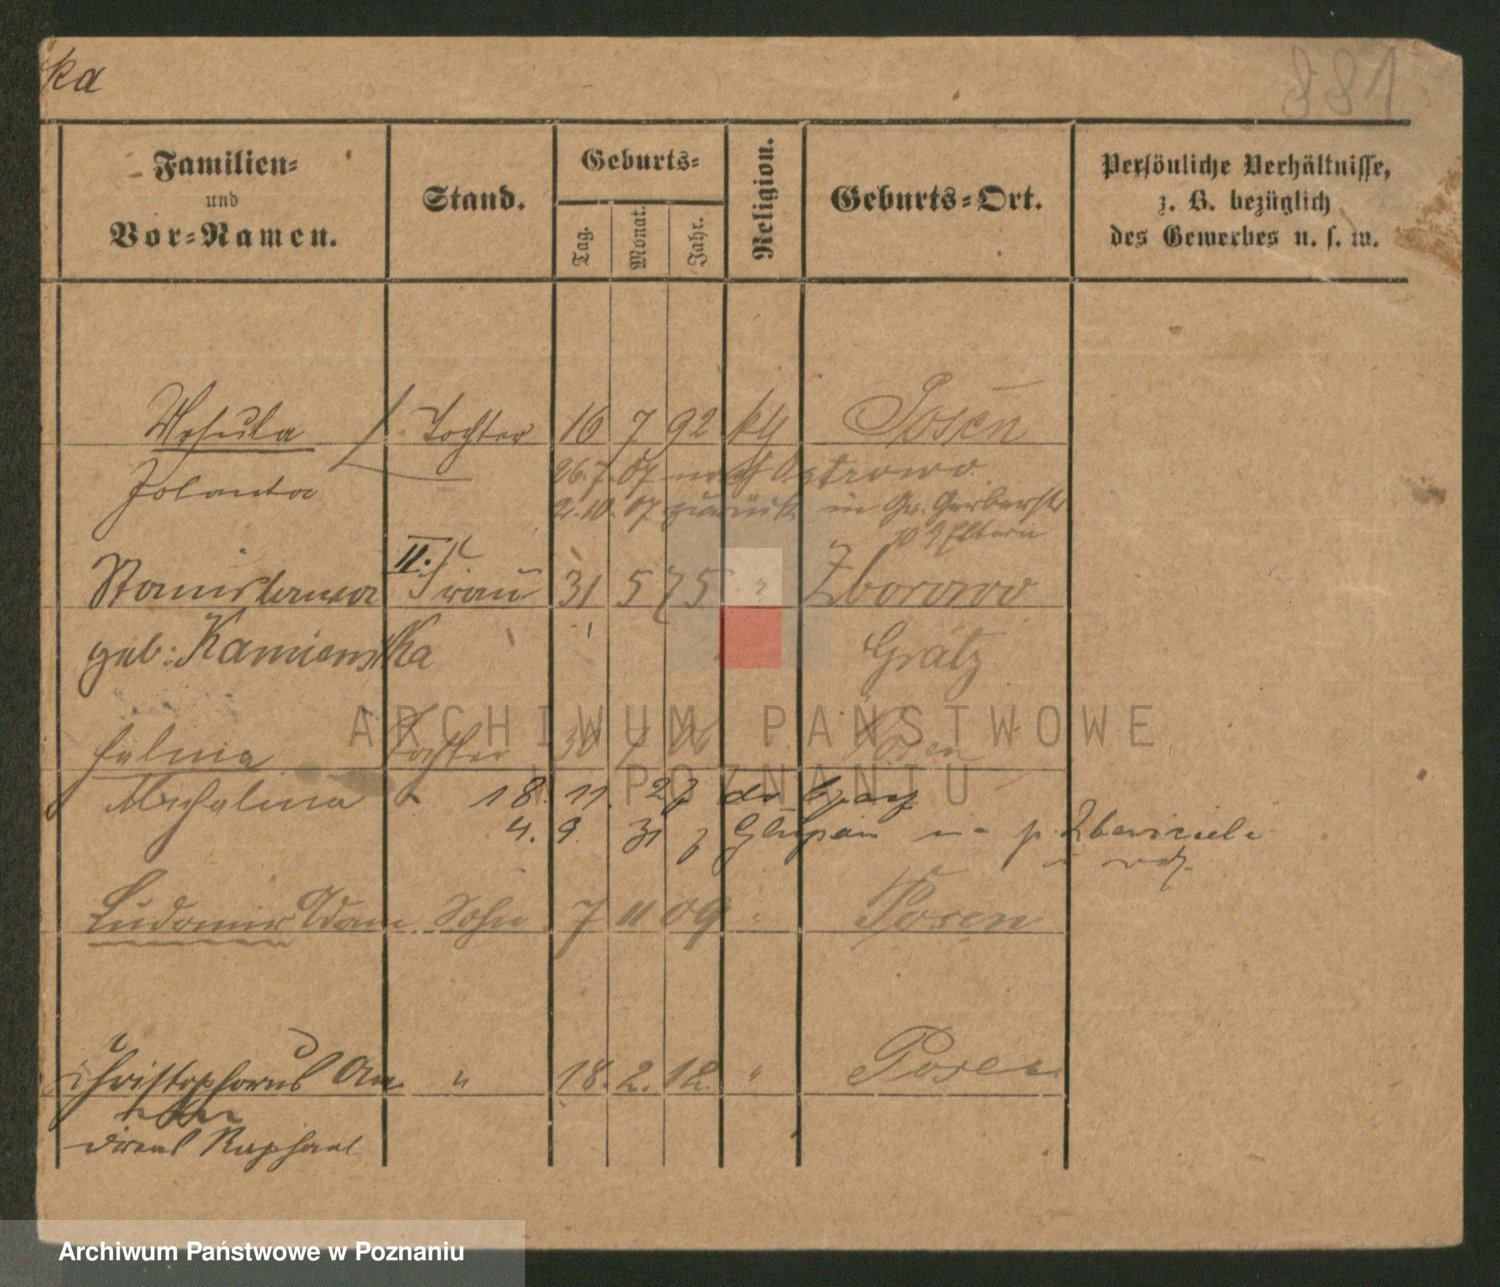 ka
881
Familien=
und
Vor=Namen.
Stand.
Geburts=
Tag.
Monat.
Jahr.
Religion.
Geburts=Ort.
Persönliche Verhältnisse,
z. B. bezüglich
des Gewerbes u. s. w.
Ursula Tochter 16 7 92 kth Posen
Jolanta 26.7.07 nach Ostrowo
2.10.07 zurück in Gr. Gerberstr
z Eltern
Stanislawa II. Frau 31 5 75 " Zborowo
geb: Kamienska Grätz
Tochter 30 Posen
Michalina 18. 11. 27 do
4. 9. 31 z
Ludomir Adam Sohn 7 11 09 " Posen
Christophorus An " 18. 2. 12. " Posen
dreas Raphael
ARCHIWUM PAŃSTWOWE
W POZNANIU
Archiwum Państwowe w Poznaniu